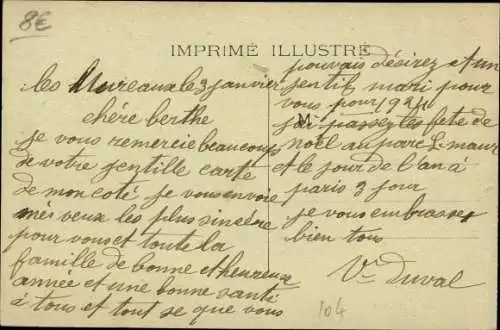 8€
IMPRIMÉ ILLUSTRÉ
les Mureaux le 3 janvier
chére berthe
je vous remercie beaucoup
de votre jentille carte
de mon coté je vous envoie
més veux les plus sincére
pour vous et toute la
famille de bonne et heureux
année et une bonne santé
à tous et tout se que vous
pouvais désirez et un
jentil mari pour
vous pour 1924
jai passez les fete de
noël au parc S. maur
et le jour de l'an à
paris 3 jour
je vous embrasses
bien tous
Ve Duval
104